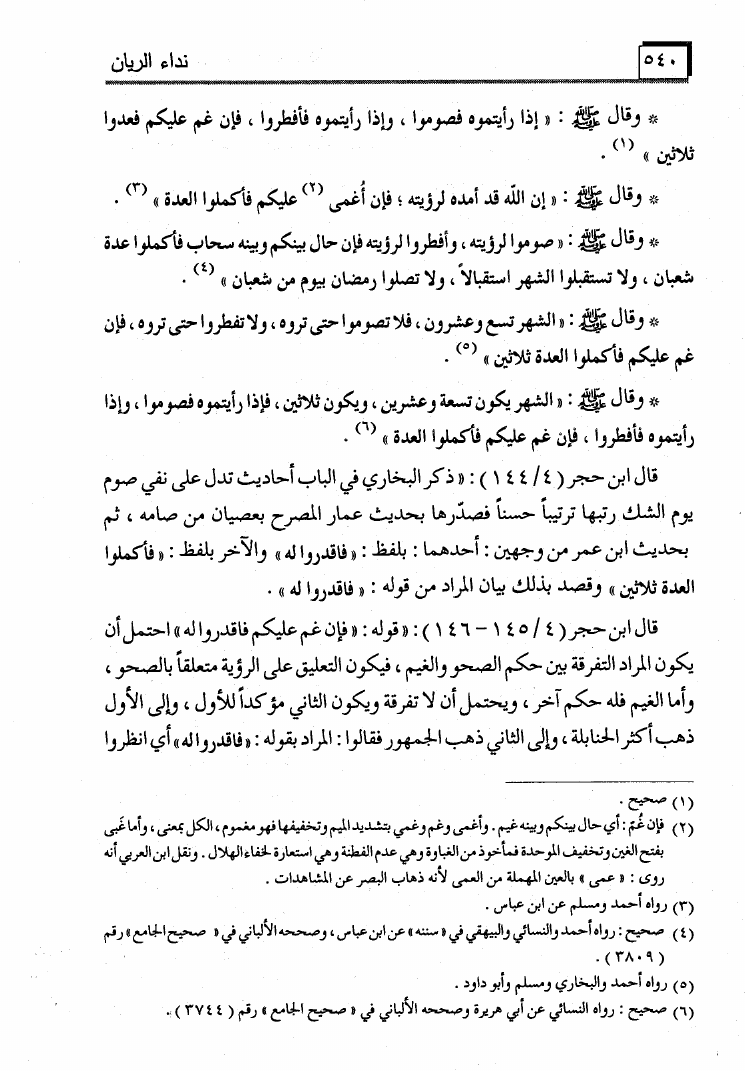 ٥٤٠
نداء الريان
* وقال ﷺ : « إذا رأيتموه فصوموا ، وإذا رأيتموه فأفطروا ، فإن غم عليكم فعدوا
ثلاثين » (١) .
* وقال ﷺ : « إن الله قد أمده لرؤيته ؛ فإن أُغمى (٢) عليكم فأكملوا العدة » (٣) .
* وقال ﷺ : « صوموا لرؤيته ، وأفطروا لرؤيته فإن حال بينكم وبينه سحاب فأكملوا عدة
شعبان ، ولا تستقبلوا الشهر استقبالاً ، ولا تصلوا رمضان بيوم من شعبان » (٤) .
* وقال ﷺ : « الشهر تسع وعشرون ، فلا تصوموا حتى تروه ، ولا تفطروا حتى تروه ، فإن
غم عليكم فأكملوا العدة ثلاثين » (٥) .
* وقال ﷺ : « الشهر يكون تسعة وعشرين ، ويكون ثلاثين ، فإذا رأيتموه فصوموا ، وإذا
رأيتموه فأفطروا ، فإن غم عليكم فأكملوا العدة » (٦) .
قال ابن حجر ( ٤/ ١٤٤ ) : « ذكر البخاري في الباب أحاديث تدل على نفي صوم
يوم الشك رتبها ترتيباً حسناً فصدّرها بحديث عمار المصرح بعصيان من صامه ، ثم
بحديث ابن عمر من وجهين : أحدهما : بلفظ : « فاقدروا له » والآخر بلفظ : « فأكملوا
العدة ثلاثين » وقصد بذلك بيان المراد من قوله : « فاقدروا له » .
قال ابن حجر ( ٤/ ١٤٥ – ١٤٦ ) : « قوله : « فإن غم عليكم فاقدروا له » احتمل أن
يكون المراد التفرقة بين حكم الصحو والغيم ، فيكون التعليق على الرؤية متعلقاً بالصحو ،
وأما الغيم فله حكم آخر ، ويحتمل أن لا تفرقة ويكون الثاني مؤكداً للأول ، وإلى الأول
ذهب أكثر الحنابلة ، وإلى الثاني ذهب الجمهور فقالوا : المراد بقوله : « فاقدروا له » أي انظروا
(١) صحيح .
(٢) فإن غُمّ : أي حال بينكم وبينه غيم . وأغمى وغم وغمي بتشديد الميم وتخفيفها فهو مغموم ، الكل بمعنى ، وأما غَبى
بفتح الغين وتخفيف الموحدة فمأخوذ من الغباوة وهي عدم الفطنة وهي استعارة لخفاء الهلال . ونقل ابن العربي أنه
روى : « عمى » بالعين المهملة من العمى لأنه ذهاب البصر عن المشاهدات .
(٣) رواه أحمد ومسلم عن ابن عباس .
(٤) صحيح : رواه أحمد والنسائي والبيهقي في « سننه » عن ابن عباس ، وصححه الألباني في « صحيح الجامع » رقم
( ٣٨٠٩ ) .
(٥) رواه أحمد والبخاري ومسلم وأبو داود .
(٦) صحيح : رواه النسائي عن أبي هريرة وصححه الألباني في « صحيح الجامع » رقم ( ٣٧٤٤ ) .